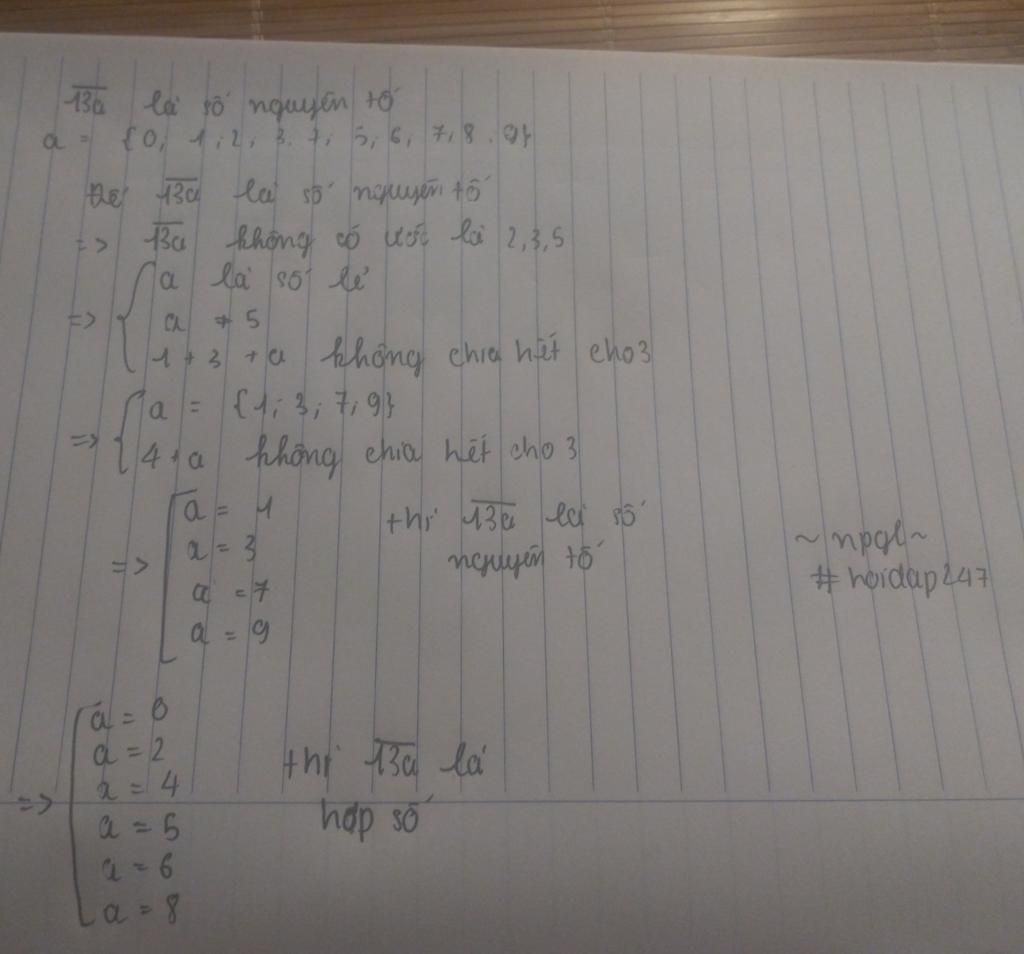 1̅3̅a̅ là số nguyên tố
a = {0, 1, 2, 3, 4, 5, 6, 7, 8, 9}
Để 1̅3̅a̅ là số nguyên tố
=> 1̅3̅a̅ không có ước là 2,3,5
=> { a là số lẻ
a ≠ 5
1 + 3 + a không chia hết cho 3
=> { a = {1; 3; 7; 9}
4 + a không chia hết cho 3
=> [ a = 1 thì 1̅3̅a̅ là số
a = 3 nguyên tố
a = 7
a = 9
~ npgl ~
#hoidap247
=> [ a = 0
a = 2 thì 1̅3̅a̅ là
a = 4 hợp số
a = 5
a = 6
a = 8